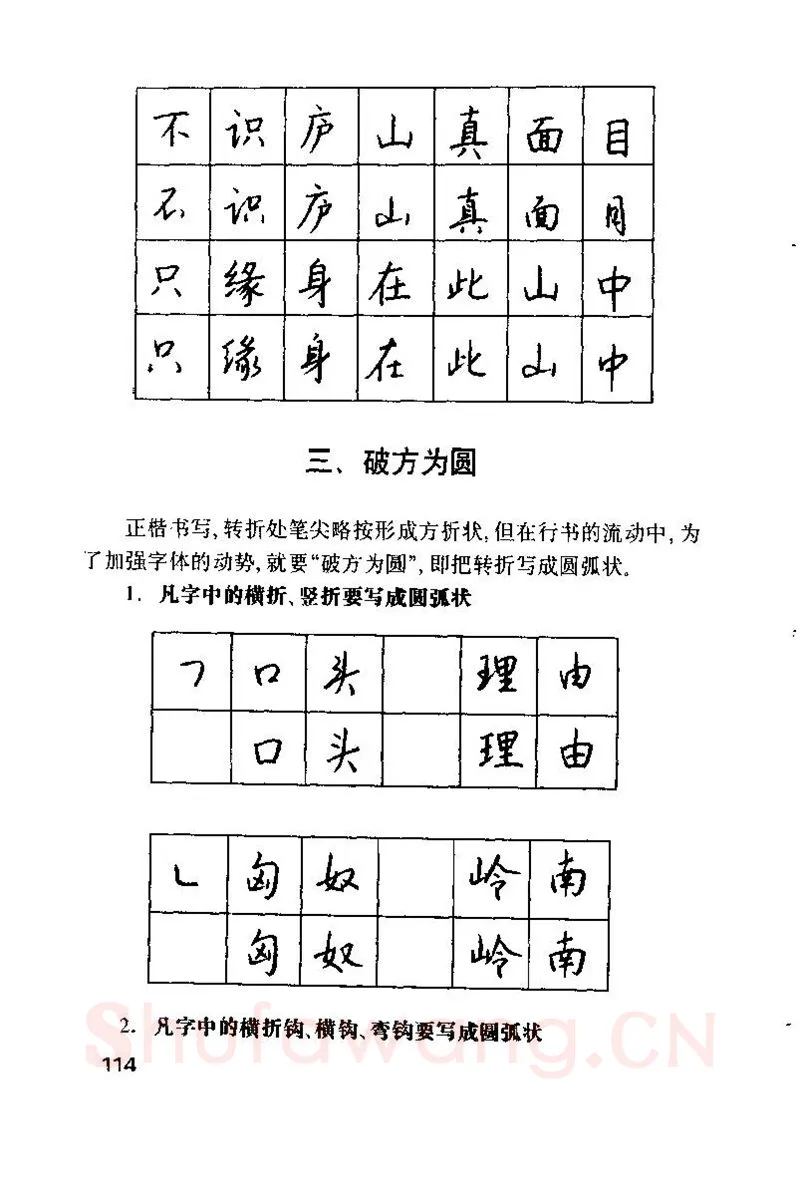 不识庐山真面目
不识庐山真面目
只缘身在此山中
只缘身在此山中
三、破方为圆
正楷书写,转折处笔尖略按形成方折状,但在行书的流动中,为
了加强字体的动势,就要“破方为圆”,即把转折写成圆弧状。
1. 凡字中的横折、竖折要写成圆弧状
㇕ 口 头 理 由
口 头 理 由
㇗ 匈 奴 岭 南
匈 奴 岭 南
2. 凡字中的横折钩、横钩、弯钩要写成圆弧状
114
Shufawang.CN